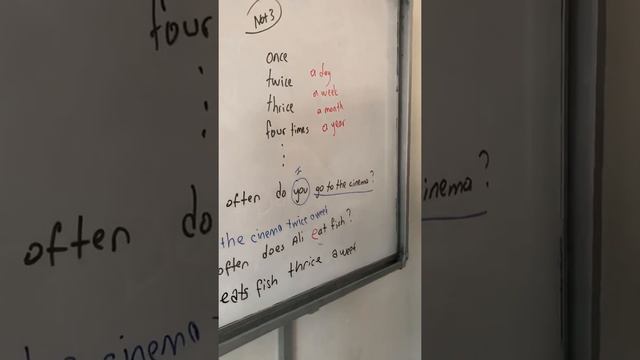 Not 3
once
twice a day
thrice a week
a month
four times a year
I
often do you go to the cinema?
the cinema twice a week
often does Ali eat fish?
eats fish thrice a week